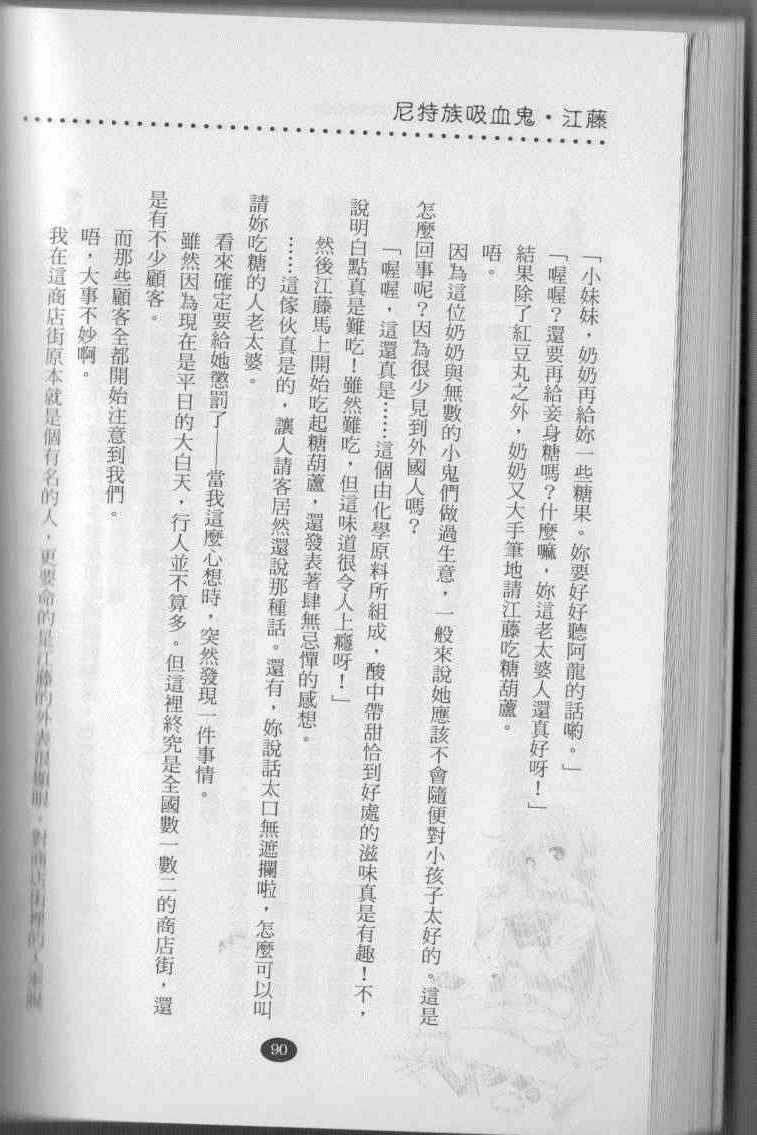 尼特族吸血鬼・江藤
「小妹妹，奶奶再給妳一些糖果。妳要好好聽阿龍的話喲。」
「喔喔？還要再給妾身糖嗎？什麼嘛，妳這老太婆人還真好呀！」
結果除了紅豆丸之外，奶奶又大手筆地請江藤吃糖葫蘆。
唔。
因為這位奶奶與無數的小鬼們做過生意，一般來說她應該不會隨便對小孩子太好的。這是
怎麼回事呢？因為很少見到外國人嗎？
「喔喔，這還真是……這個由化學原料所組成，酸中帶甜恰到好處的滋味真是有趣！不，
說明白點真是難吃！雖然難吃，但這味道很令人上癮呀！」
然後江藤馬上開始吃起糖葫蘆，還發表著肆無忌憚的感想。
……這傢伙真是的，讓人請客居然還說那種話。還有，妳說話太口無遮攔啦，怎麼可以叫
請妳吃糖的人老太婆。
看來確定要給她懲罰了──當我這麼心想時，突然發現一件事情。
雖然因為現在是平日的大白天，行人並不算多。但這裡終究是全國數一數二的商店街，還
是有不少顧客。
而那些顧客全都開始注意到我們。
唔，大事不妙啊。
我在這商店街原本就是個有名的人，更要命的是江藤的外表很顯眼，對商店街裡的人來說
90